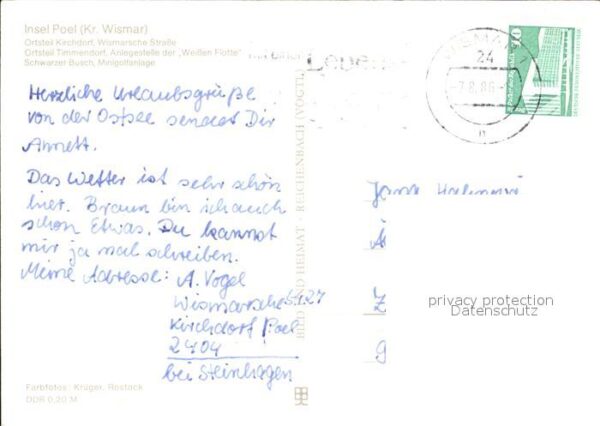 Insel Poel (Kr. Wismar)
Ortsteil Kirchdorf, Wismarsche Straße
Ortsteil Timmendorf, Anlegestelle der „Weißen Flotte"
Schwarzer Busch, Minigolfanlage
WISMAR
24
-7.8.86-
n
20
Herzliche Urlaubsgrüße
von der Ostsee sendet Dir
Annett.
Das Wetter ist sehr schön
hier. Braun bin ich auch
schon Etwas. Du kannst
mir ja mal schreiben.
Meine Adresse: A. Vogel
Wismarsche Str. 27
Kirchdorf/Poel
2404
bei Steinhagen
BILD UND HEIMAT · REICHENBACH (VOGTL)
Jana
privacy protection
Datenschutz
Farbfotos: Krüger, Rostock
DDR 0,20 M